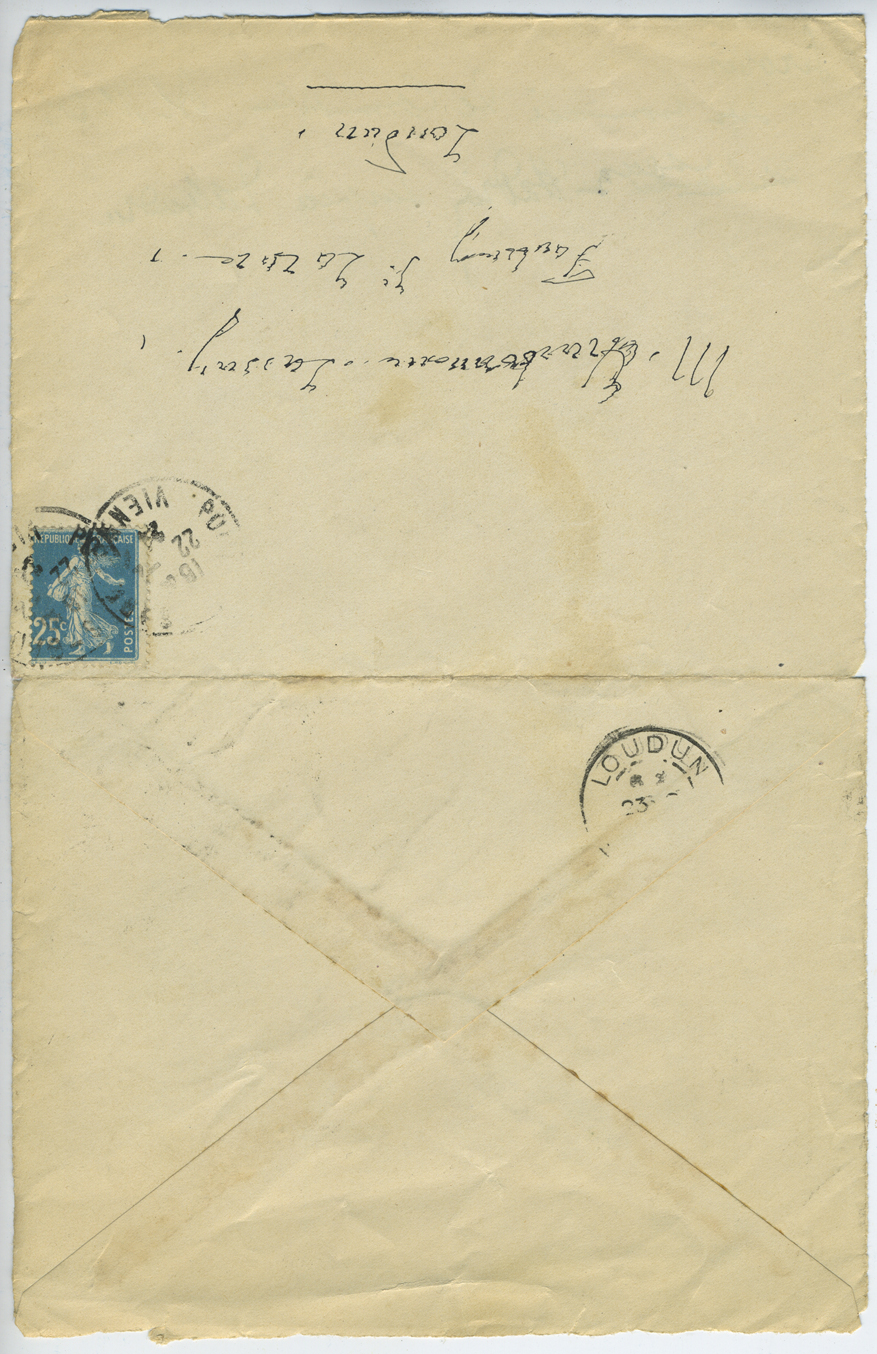 M. Charbonneau-Lassay,
Faubourg St Lazare.,
Loudun.
RÉPUBLIQUE FRANÇAISE
25c
POSTES
VIEN
22
LOUDUN
23